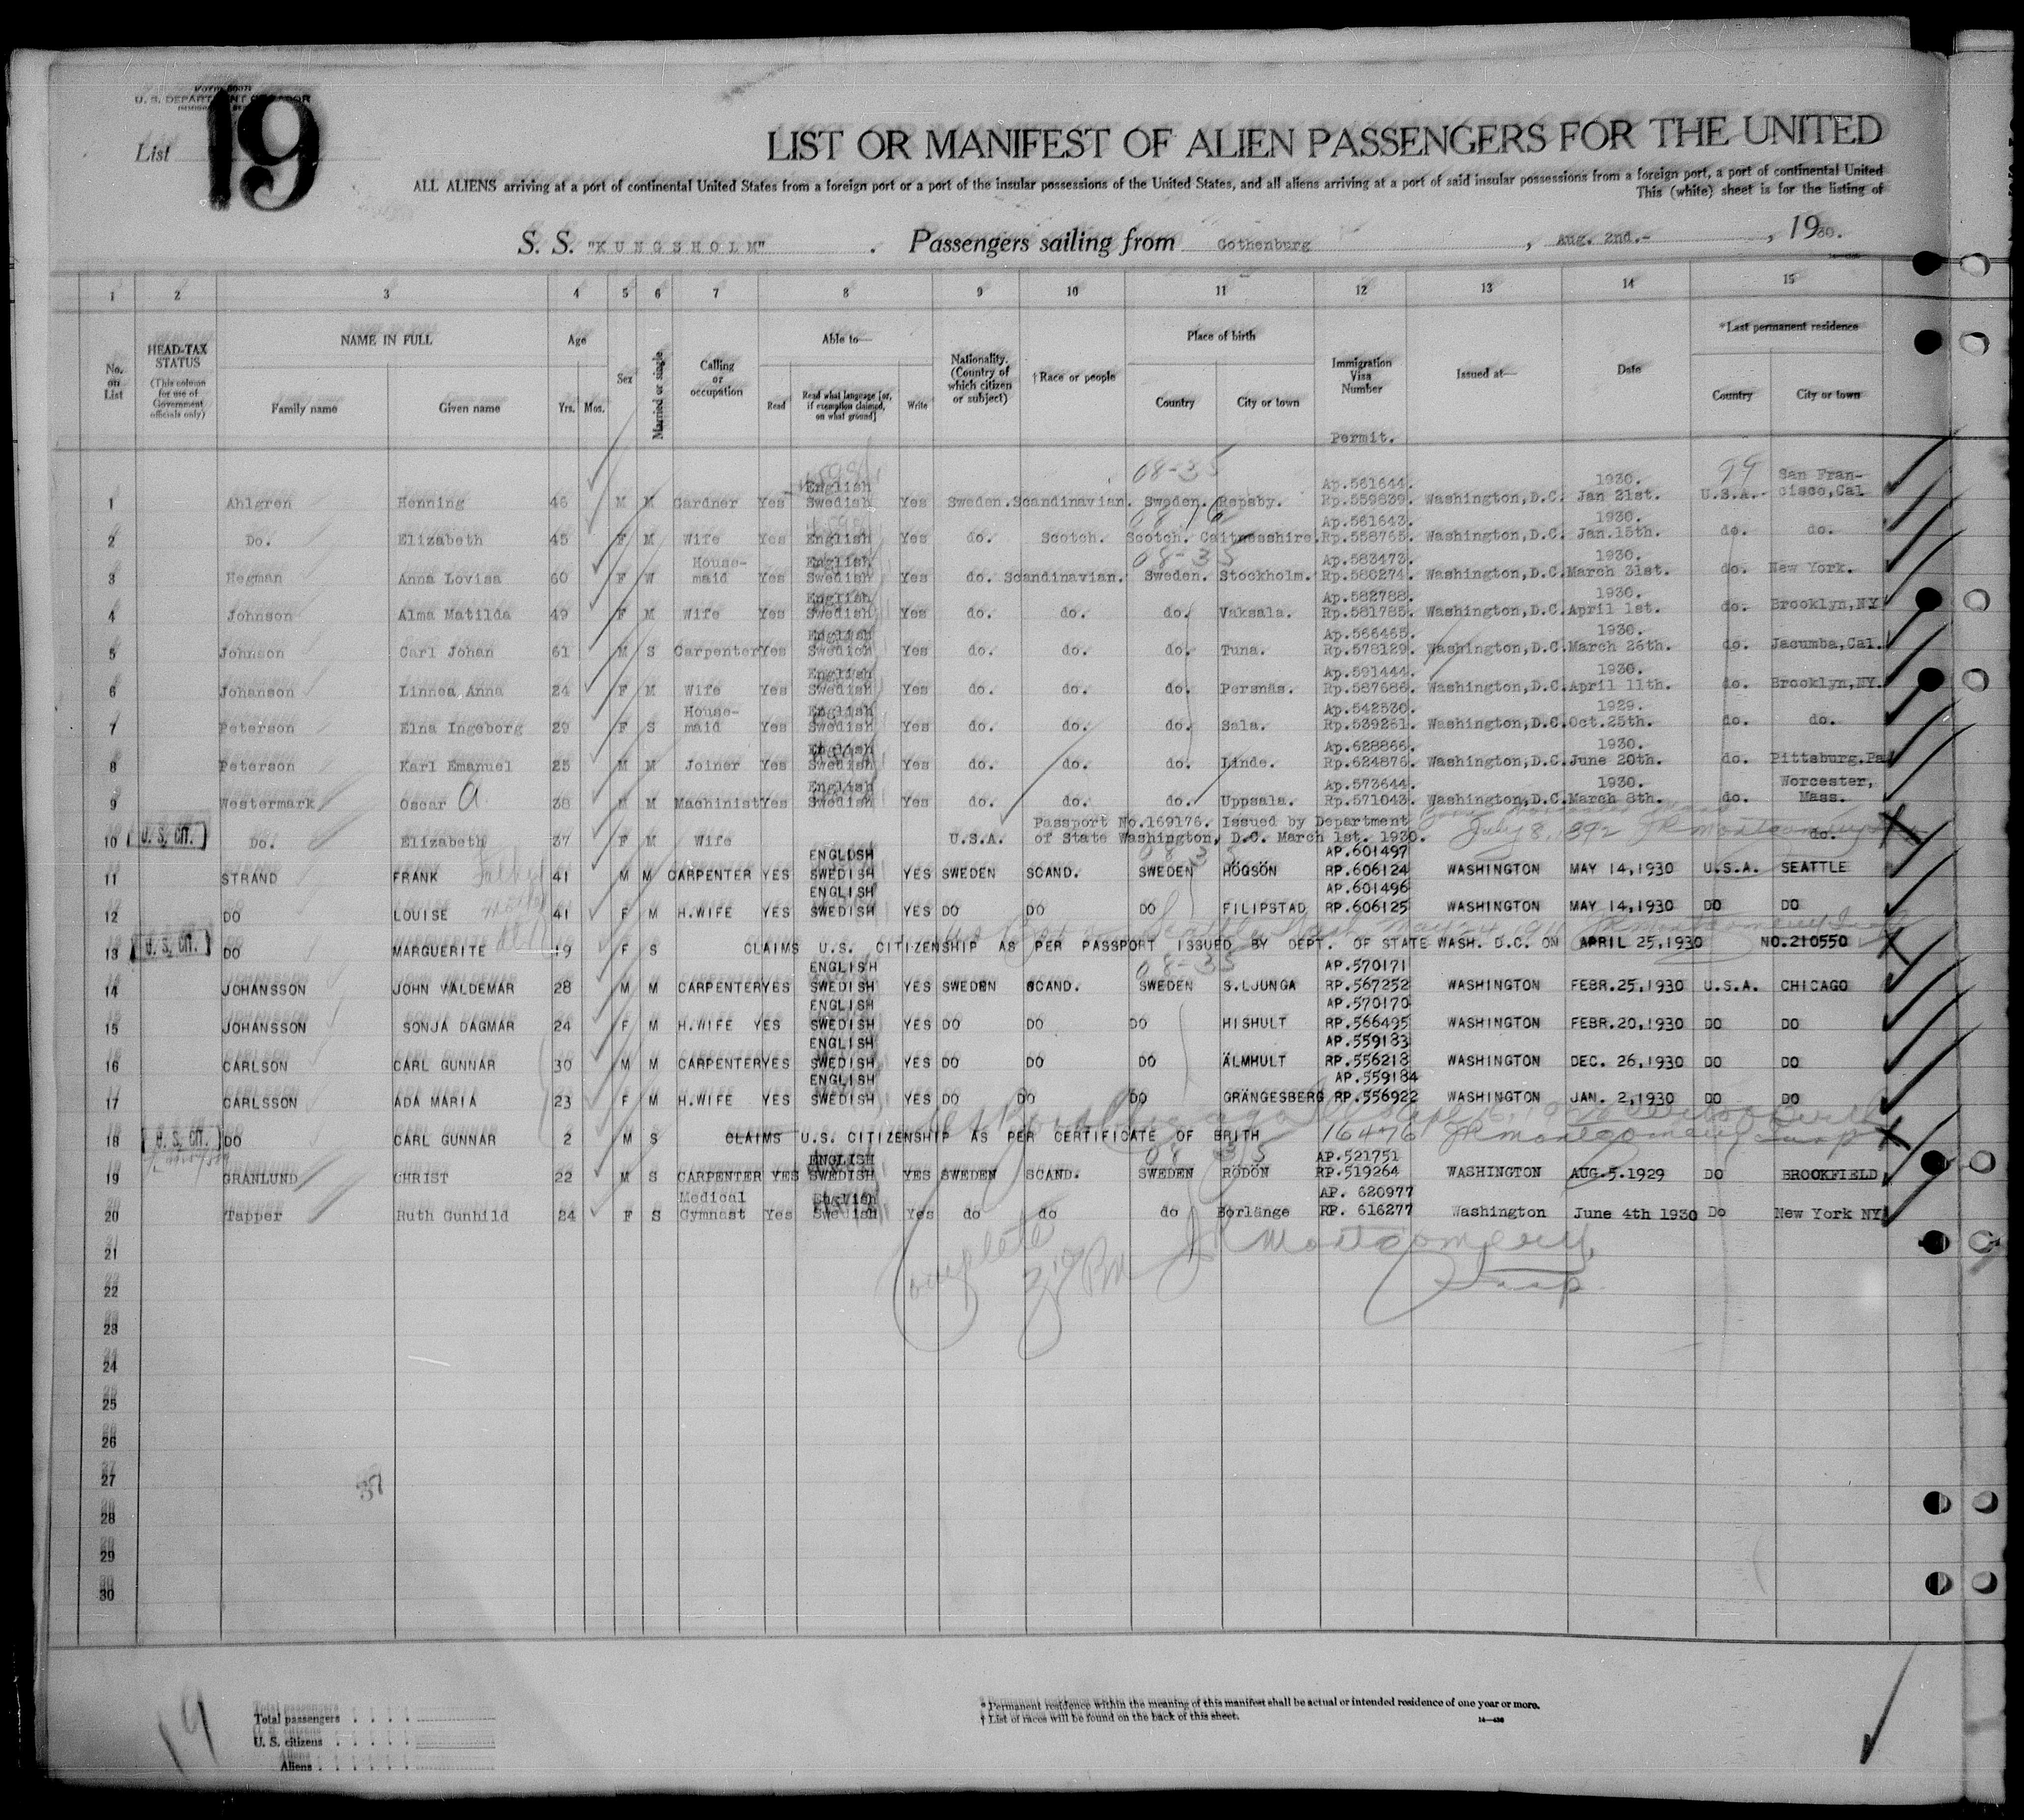 U. S. DEPARTMENT OF LABOR
List 19
LIST OR MANIFEST OF ALIEN PASSENGERS FOR THE UNITED
ALL ALIENS arriving at a port of continental United States from a foreign port or a port of the insular possessions of the United States, and all aliens arriving at a port of said insular possessions from a foreign port, a port of continental United
This (white) sheet is for the listing of
S. S. "KUNGSHOLM" . Passengers sailing from Gothenburg , Aug. 2nd.- , 1930.
1 2 3 4 5 6 7 8 9 10 11 12 13 14 15
No. on List
HEAD-TAX STATUS (This column for use of Government officials only)
NAME IN FULL
Family name Given name
Age
Yrs. Mos.
Sex
Married or single
Calling or occupation
Able to—
Read Read what language [or, if exemption claimed, on what ground] Write
Nationality. (Country of which citizen or subject)
†Race or people
Place of birth
Country City or town
Immigration Visa Number
Permit.
Issued at—
Date
*Last permanent residence
Country City or town
08-35 99
English Ap.561644. 1930. San Fran-
1 Ahlgren Henning 46 M M Gardner Yes Swedish Yes Sweden. Scandinavian. Sweden. Repsby. Rp.559839. Washington,D.C. Jan 21st. U.S.A. cisco,Cal
Ap.561643. 1930.
2 Do. Elizabeth 45 F M Wife Yes English Yes do. Scotch. Scotch. Caitnesshire. Rp.558765. Washington,D.C. Jan.15th. do. do.
08-35
House- English Ap.583473. 1930.
3 Hegman Anna Lovisa 60 F W maid Yes Swedish Yes do. Scandinavian. Sweden. Stockholm. Rp.580274. Washington,D.C. March 31st. do. New York.
English Ap.582788. 1930.
4 Johnson Alma Matilda 49 F M Wife Yes Swedish Yes do. do. do. Vaksala. Rp.581785. Washington,D.C. April 1st. do. Brooklyn,NY
English Ap.566465. 1930.
5 Johnson Carl Johan 61 M S Carpenter Yes Swedish Yes do. do. do. Tuna. Rp.578129. Washington,D.C. March 26th. do. Jacumba,Cal.
English Ap.591444. 1930.
6 Johanson Linnea Anna 24 F M Wife Yes Swedish Yes do. do. do. Persnäs. Rp.587686. Washington,D.C. April 11th. do. Brooklyn,NY.
House- English Ap.542530. 1929.
7 Peterson Elna Ingeborg 29 F S maid Yes Swedish Yes do. do. do. Sala. Rp.539261. Washington,D.C. Oct.25th. do. do.
English Ap.628866. 1930.
8 Peterson Karl Emanuel 25 M M Joiner Yes Swedish Yes do. do. do. Linde. Rp.624876. Washington,D.C. June 20th. do. Pittsburg.Pa
English Ap.573644. 1930. Worcester,
9 Westermark Oscar A. 38 M M Machinist Yes Swedish Yes do. do. do. Uppsala. Rp.571043. Washington,D.C. March 8th. do. Mass.
Passport No.169176. Issued by Department
10 U. S. CIT. Do. Elizabeth 37 F M Wife U.S.A. of State Washington, D.C. March 1st. 1930. July 8, 1892 JR Montgomery do.
ENGLISH AP.601497
11 STRAND FRANK Father 41 M M CARPENTER YES SWEDISH YES SWEDEN SCAND. SWEDEN HÖGSÖN RP.606124 WASHINGTON MAY 14,1930 U.S.A. SEATTLE
ENGLISH AP.601496
12 DO LOUISE Mother 41 F M H.WIFE YES SWEDISH YES DO DO DO FILIPSTAD RP.606125 WASHINGTON MAY 14,1930 DO DO
13 U. S. CIT. DO MARGUERITE 19 F S CLAIMS U.S. CITIZENSHIP AS PER PASSPORT ISSUED BY DEPT. OF STATE WASH. D.C. ON APRIL 25,1930 NO.210550
08-35
ENGLISH AP.570171
14 JOHANSSON JOHN VALDEMAR 28 M M CARPENTER YES SWEDISH YES SWEDEN SCAND. SWEDEN S.LJUNGA RP.567252 WASHINGTON FEBR.25,1930 U.S.A. CHICAGO
ENGLISH AP.570170
15 JOHANSSON SONJA DAGMAR 24 F M H.WIFE YES SWEDISH YES DO DO DO HISHULT RP.566495 WASHINGTON FEBR.20,1930 DO DO
ENGLISH AP.559183
16 CARLSON CARL GUNNAR 30 M M CARPENTER YES SWEDISH YES DO DO DO ÄLMHULT RP.556218 WASHINGTON DEC. 26,1930 DO DO
ENGLISH AP.559184
17 CARLSSON ADA MARIA 23 F M H.WIFE YES SWEDISH YES DO DO DO GRÄNGESBERG RP.556922 WASHINGTON JAN. 2,1930 DO DO
18 U. S. CIT. DO CARL GUNNAR 2 M S CLAIMS U.S. CITIZENSHIP AS PER CERTIFICATE OF BRITH 16476 JR Montgomery Insp
08 35
ENGLISH AP.521751
19 GRANLUND CHRIST 22 M S CARPENTER YES SWEDISH YES SWEDEN SCAND. SWEDEN RÖDÖN RP.519264 WASHINGTON AUG.5.1929 DO BROOKFIELD
Medical English AP. 620977
20 Tapper Ruth Gunhild 24 F S Gymnast Yes Swedish Yes do do do Borlänge RP. 616277 Washington June 4th 1930 Do New York NY
21
Complete 3:10 PM JR Montgomery
Insp.
22
23
24
25
26
27
37
28
29
30
19
Total passengers
U. S. citizens
Aliens
* Permanent residence within the meaning of this manifest shall be actual or intended residence of one year or more.
† List of races will be found on the back of this sheet.